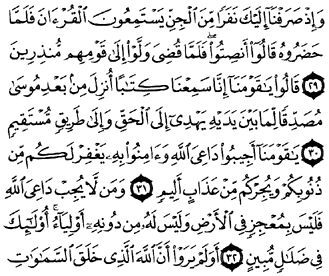 وَإِذْ صَرَفْنَآ إِلَيْكَ نَفَرًا مِّنَ ٱلْجِنِّ يَسْتَمِعُونَ ٱلْقُرْءَانَ فَلَمَّا
حَضَرُوهُ قَالُوٓا۟ أَنصِتُوا۟ ۖ فَلَمَّا قُضِىَ وَلَّوْا۟ إِلَىٰ قَوْمِهِم مُّنذِرِينَ
٢٩ قَالُوا۟ يَٰقَوْمَنَآ إِنَّا سَمِعْنَا كِتَٰبًا أُنزِلَ مِنۢ بَعْدِ مُوسَىٰ
مُصَدِّقًا لِّمَا بَيْنَ يَدَيْهِ يَهْدِىٓ إِلَى ٱلْحَقِّ وَإِلَىٰ طَرِيقٍ مُّسْتَقِيمٍ
٣٠ يَٰقَوْمَنَآ أَجِيبُوا۟ دَاعِىَ ٱللَّهِ وَءَامِنُوا۟ بِهِۦ يَغْفِرْ لَكُم مِّن
ذُنُوبِكُمْ وَيُجِرْكُم مِّنْ عَذَابٍ أَلِيمٍ ٣١ وَمَن لَّا يُجِبْ دَاعِىَ ٱللَّهِ
فَلَيْسَ بِمُعْجِزٍ فِى ٱلْأَرْضِ وَلَيْسَ لَهُۥ مِن دُونِهِۦٓ أَوْلِيَآءُ ۚ أُو۟لَٰٓئِكَ
فِى ضَلَٰلٍ مُّبِينٍ ٣٢ أَوَلَمْ يَرَوْا۟ أَنَّ ٱللَّهَ ٱلَّذِى خَلَقَ ٱلسَّمَٰوَٰتِ